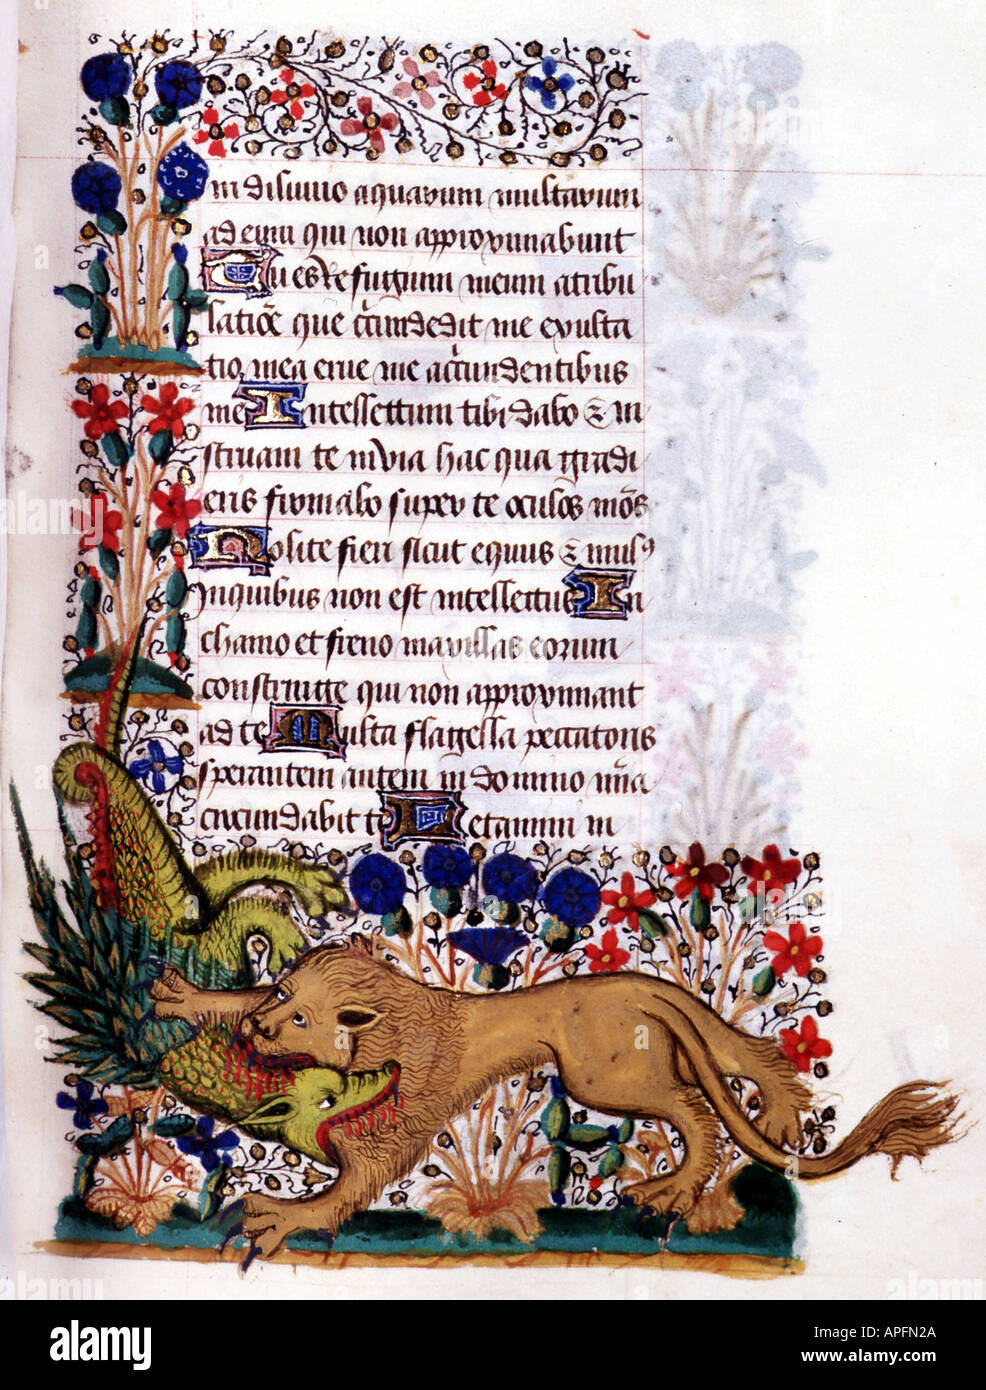 in diluuio aquarum multarum
ad eum qui non approximabunt
Tu es Refugium meum a tribu
latiōe que c̄cundedit me exulta
tio mea erue me a c̄cundentibus
me Intellectum tibi dabo & in
struam te in via hac qua gradi
eris firmabo super te oculos mōs
Nolite fieri sicut equus & mulꝰ
in quibus non est intellectus In
chamo et freno maxillas eorum
constringe qui non approximant
ad te Multa flagella peccatoris
sperantem autem in domino mīa
circundabit Letamini in
alamy
Image ID: APFN2A
www.alamy.com